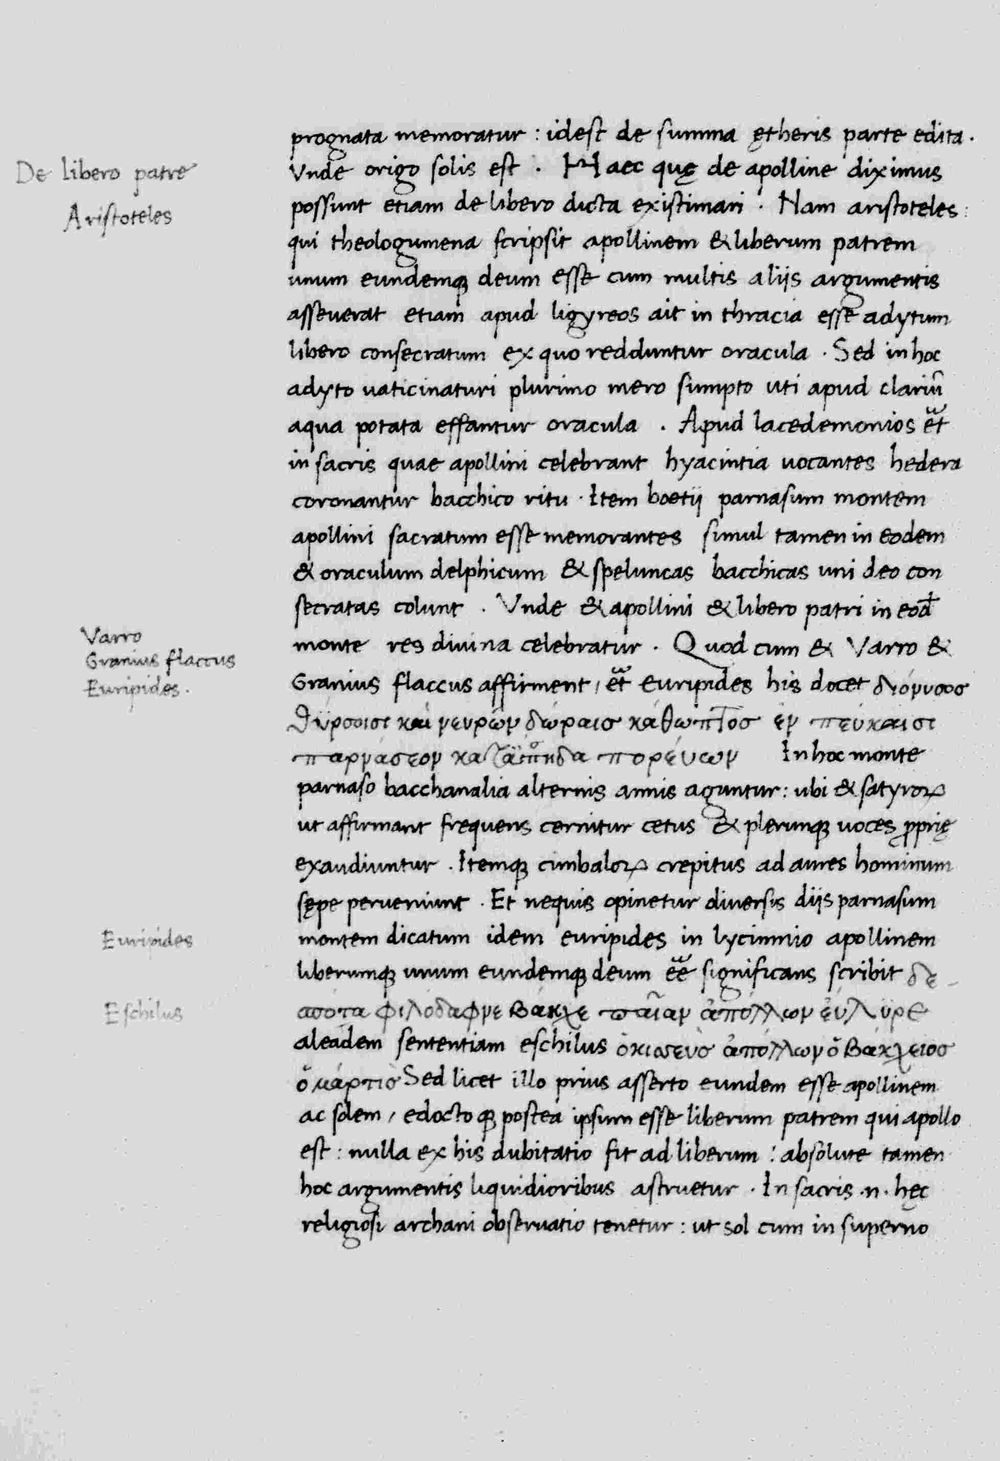 prognata memoratur : idest de summa ętheris parte edita .
De libero patre
Vnde origo solis est . Haec quę de apolline diximus
Aristoteles
possunt etiam de libero dicta existimari . Nam aristoteles :
qui theologumena scripsit apollinem & liberum patrem
unum eundemq; deum esse cum multis aliis argumentis
asseuerat etiam apud ligyreos ait in thracia esse adytum
libero consecratum ex quo redduntur oracula . Sed in hoc
adyto uaticinaturi plurimo mero sumpto uti apud clariū
aqua potata effantur oracula . Apud lacedemonios et
in sacris quae apollini celebrant hyacintia uocantes hedera
coronantur bacchico ritu . Item boetij parnasum montem
apollini sacratum esse memorantes simul tamen in eodem
& oraculum delphicum & speluncas bacchicas uni deo con
secratas colunt . Vnde & apollini & libero patri in eod
Varro
monte res diuina celebratur . Quod cum & Varro &
Granius flaccus
Euripides .
Granius flaccus affirment , et Euripides his docet διόνυσος
θύρσοισι και νευρών δώραις κάθωπτος εν πεύκαισι
παρνάσεον πορεύων In hoc monte
parnaso bacchanalia alternis annis aguntur : ubi & satyroꝝ
ut affirmant frequens cernitur cetus & plerunq; uoces ꝓprię
exaudiuntur . Itemq; cimbaloꝝ crepitus ad aures hominum
sępe perueniunt . Et nequis opinetur diuersis diis parnasum
Euripides
montem dicatum idem euripides in lycimnio apollinem
liberumq; unum eundemq; deum ēē significans scribit δέ-
Eschilus
αποτα φιλόδαφνε Βάκχε παιαν απόλλων εύλύρε
aleadem sententiam eschilus ὁκισευσ απόλλων ὁ Βάκχειος
ὁ μάρτισ Sed licet illo prius asserto eundem esse apollinem
ac solem , edocto q; postea ipsum esse liberum patrem qui apollo
est : nulla ex his dubitatio sit ad liberum : absolute tamen
hoc argumentis liquidioribus astruetur . In sacris .n. hęc
religiosi archani obseruatio tenetur : ut sol cum in superno